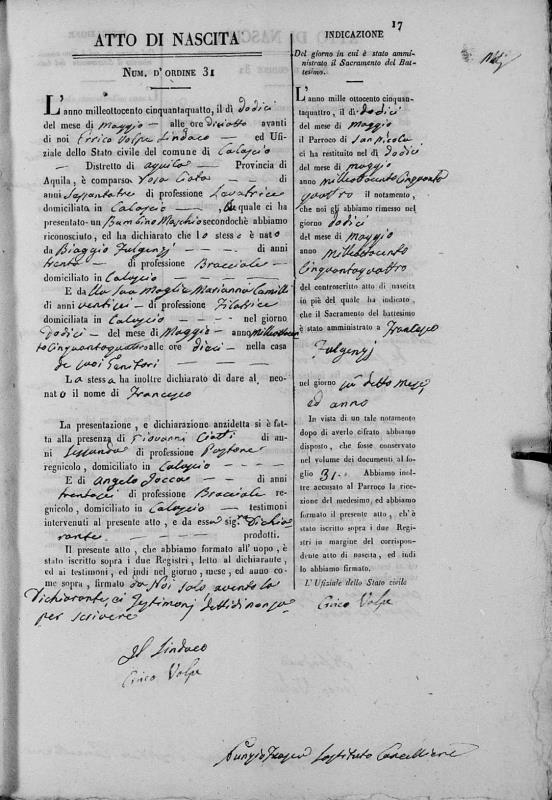 17
ATTO DI NASCITA
NUM. D'ORDINE 31
L'anno milleottocento cinquantaquattro, il dì dodici
del mese di Maggio — alle ore diciotto avanti
di noi Errico Volpe Sindaco — ed Ufi-
ziale dello Stato civile del comune di Calascio
— Distretto di Aquila — Provincia di
Aquila, è comparsa Rosa Ciota — di
anni Sessantatre di professione Levatrice
domiciliata in Calascio — la quale ci ha
presentato un Bambino Maschio secondochè abbiamo
riconosciuto, ed ha dichiarato che lo stesso è nato
da Biaggio Fulgenzj — di anni
trenta — di professione Bracciale —
domiciliato in Calascio —
E da lla sua Moglie Marianna Camilli
di anni ventisei — di professione Filatrice
domiciliata in Calascio — nel giorno
dodici — del mese di Maggio — anno milleottocen
to Cinquantaquattro alle ore dieci — nella casa
de suoi Genitori —
La stessa ha inoltre dichiarato di dare al neo-
nato il nome di Francesco
La presentazione, e dichiarazione anzidetta si è fat-
ta alla presenza di Giovanni Ciotti di an-
ni Sessanda di professione Pastore
regnicolo, domiciliato in Calascio — — — —
E di Angelo — di anni
trentasei di professione Bracciale re-
gnicolo, domiciliato in Calascio — testimoni
intervenuti al presente atto, e da essa sig.ra Dichia
rante — — — — prodotti.
Il presente atto, che abbiamo formato all'uopo, è
stato iscritto sopra i due Registri, letto al dichiarante,
ed ai testimoni, ed indi nel giorno, mese, ed anno co-
me sopra, firmato da Noi solo avendo la
Dichiarante, ei Testimonj detto di non sa
per scrivere
Il Sindaco
Errico Volpe
INDICAZIONE
Del giorno in cui è stato ammi-
nistrato il Sacramento del Bat-
tesimo.
L'anno mille ottocento cinquan-
taquattro, il dì dodici
del mese di Maggio
il Parroco di San Nicola
ci ha restituito nel dì dodici
del mese di Maggio
anno milleottocento Cinquanta
quattro il notamento,
che noi gli abbiamo rimesso nel
giorno dodici
del mese di Maggio
anno milleottocento
Cinquantaquattro
del controscritto atto di nascita
in piè del quale ha indicato,
che il Sacramento del battesimo
è stato amministrato a Francesco
Fulgenzj
nel giorno sud detto mese,
ed anno
In vista di un tale notamento
dopo di averlo cifrato abbiamo
disposto, che fosse conservato
nel volume dei documenti al fo-
glio 31. Abbiamo inol-
tre accusato al Parroco la rice-
zione del medesimo, ed abbiamo
formato il presente atto, ch'è
stato iscritto sopra i due Regi-
stri in margine del corrispon-
dente atto di nascita, ed indi
lo abbiamo firmato.
L'Ufiziale dello Stato civile
Errico Volpe
Sostituto Cancelliere